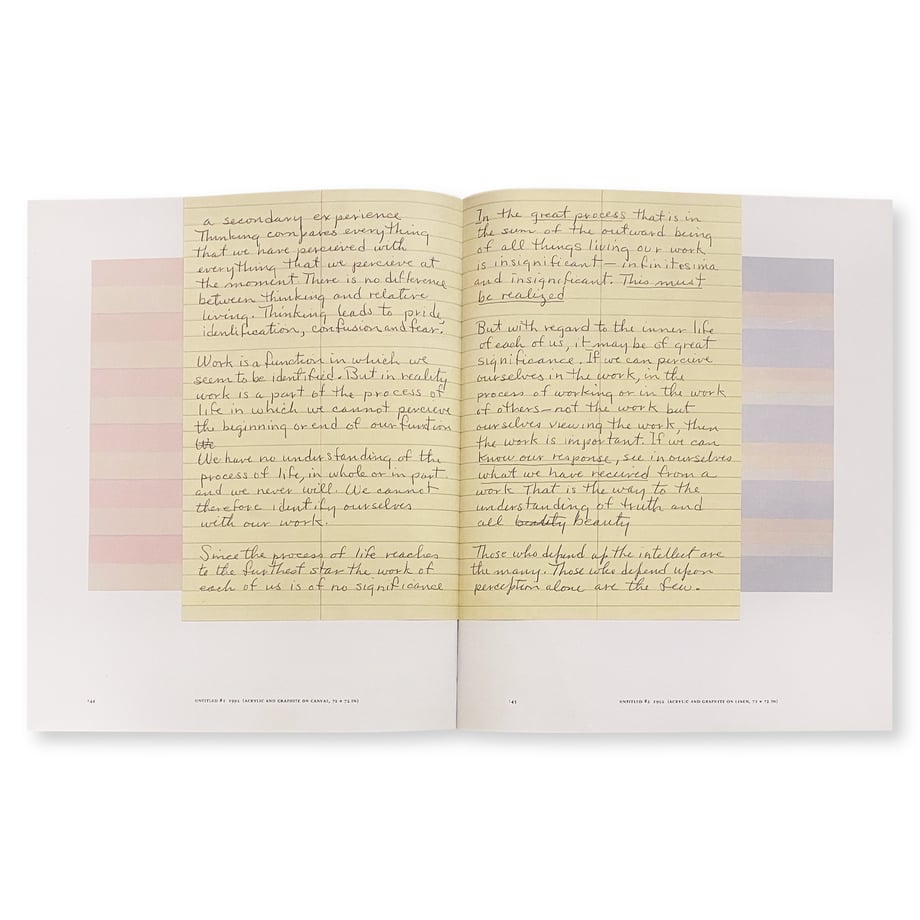 a secondary experience
Thinking compares everything
that we have percieved with
everything that we percieve at
the moment There is no difference
between thinking and relative
living. Thinking leads to pride,
identification, confusion and fear.
Work is a function in which we
seem to be identified. But in reality
work is a part of the process of
life in which we cannot percieve
the beginning or end of our function
We
We have no understanding of the
process of life, in whole or in part
and we never will. We cannot
therefore identify ourselves
with our work.
Since the process of life reaches
to the furthest star the work of
each of us is of no significance
144
UNTITLED #1 1992 (ACRYLIC AND GRAPHITE ON CANVAS, 72 × 72 IN)
In the great process that is in
the sum of the outward being
of all things living our work
is insignificant — infinitesima
and insignificant. This must
be realized
But with regard to the inner life
of each of us, it may be of great
significance. If we can percieve
ourselves in the work, in the
process of working or in the work
of others – not the work but
ourselves viewing the work, then
the work is important. If we can
know our response, see in ourselves
what we have recieved from a
work That is the way to the
understanding of truth and
all beautity beauty
Those who depend up the intellect are
the many. Those who depend upon
perception alone are the few.
145
UNTITLED #2 1992 (ACRYLIC AND GRAPHITE ON LINEN, 72 × 72 IN)